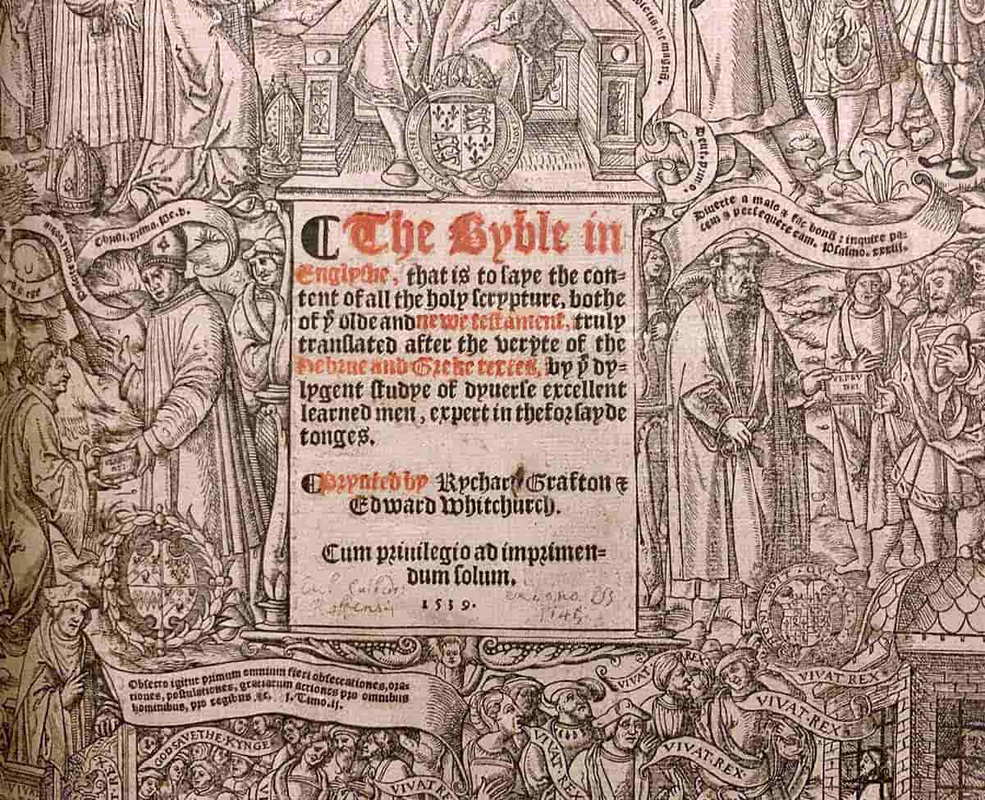 Deut. primo.
Diuerte a malo & fac bonū : inquire pa-
cem & persequere eam. Psalmo. xxxiii.
¶ The Byble in
Englyshe, that is to saye the con-
tent of all the holy scrypture, bothe
of yͤ olde and newe testament, truly
translated after the veryte of the
Hebrue and Greke textes, by yͤ dy-
lygent studye of dyuerse excellent
learned men, expert in the forsayde
tonges.
¶ Prynted by Rychard Grafton &
Edward Whitchurch.
Cum priuilegio ad imprimen-
dum solum.
1539.
Obsecro igitur primum omnium fieri obsecrationes, ora-
tiones, postulationes, gratiarum actiones pro omnibus
hominibus, pro regibus, &c. i. Timo. ij.
GOD SAVE THE KYNGE
VIVAT REX
VIVAT REX
VIVAT REX
VIVAT REX
VIVAT REX
VIVAT REX